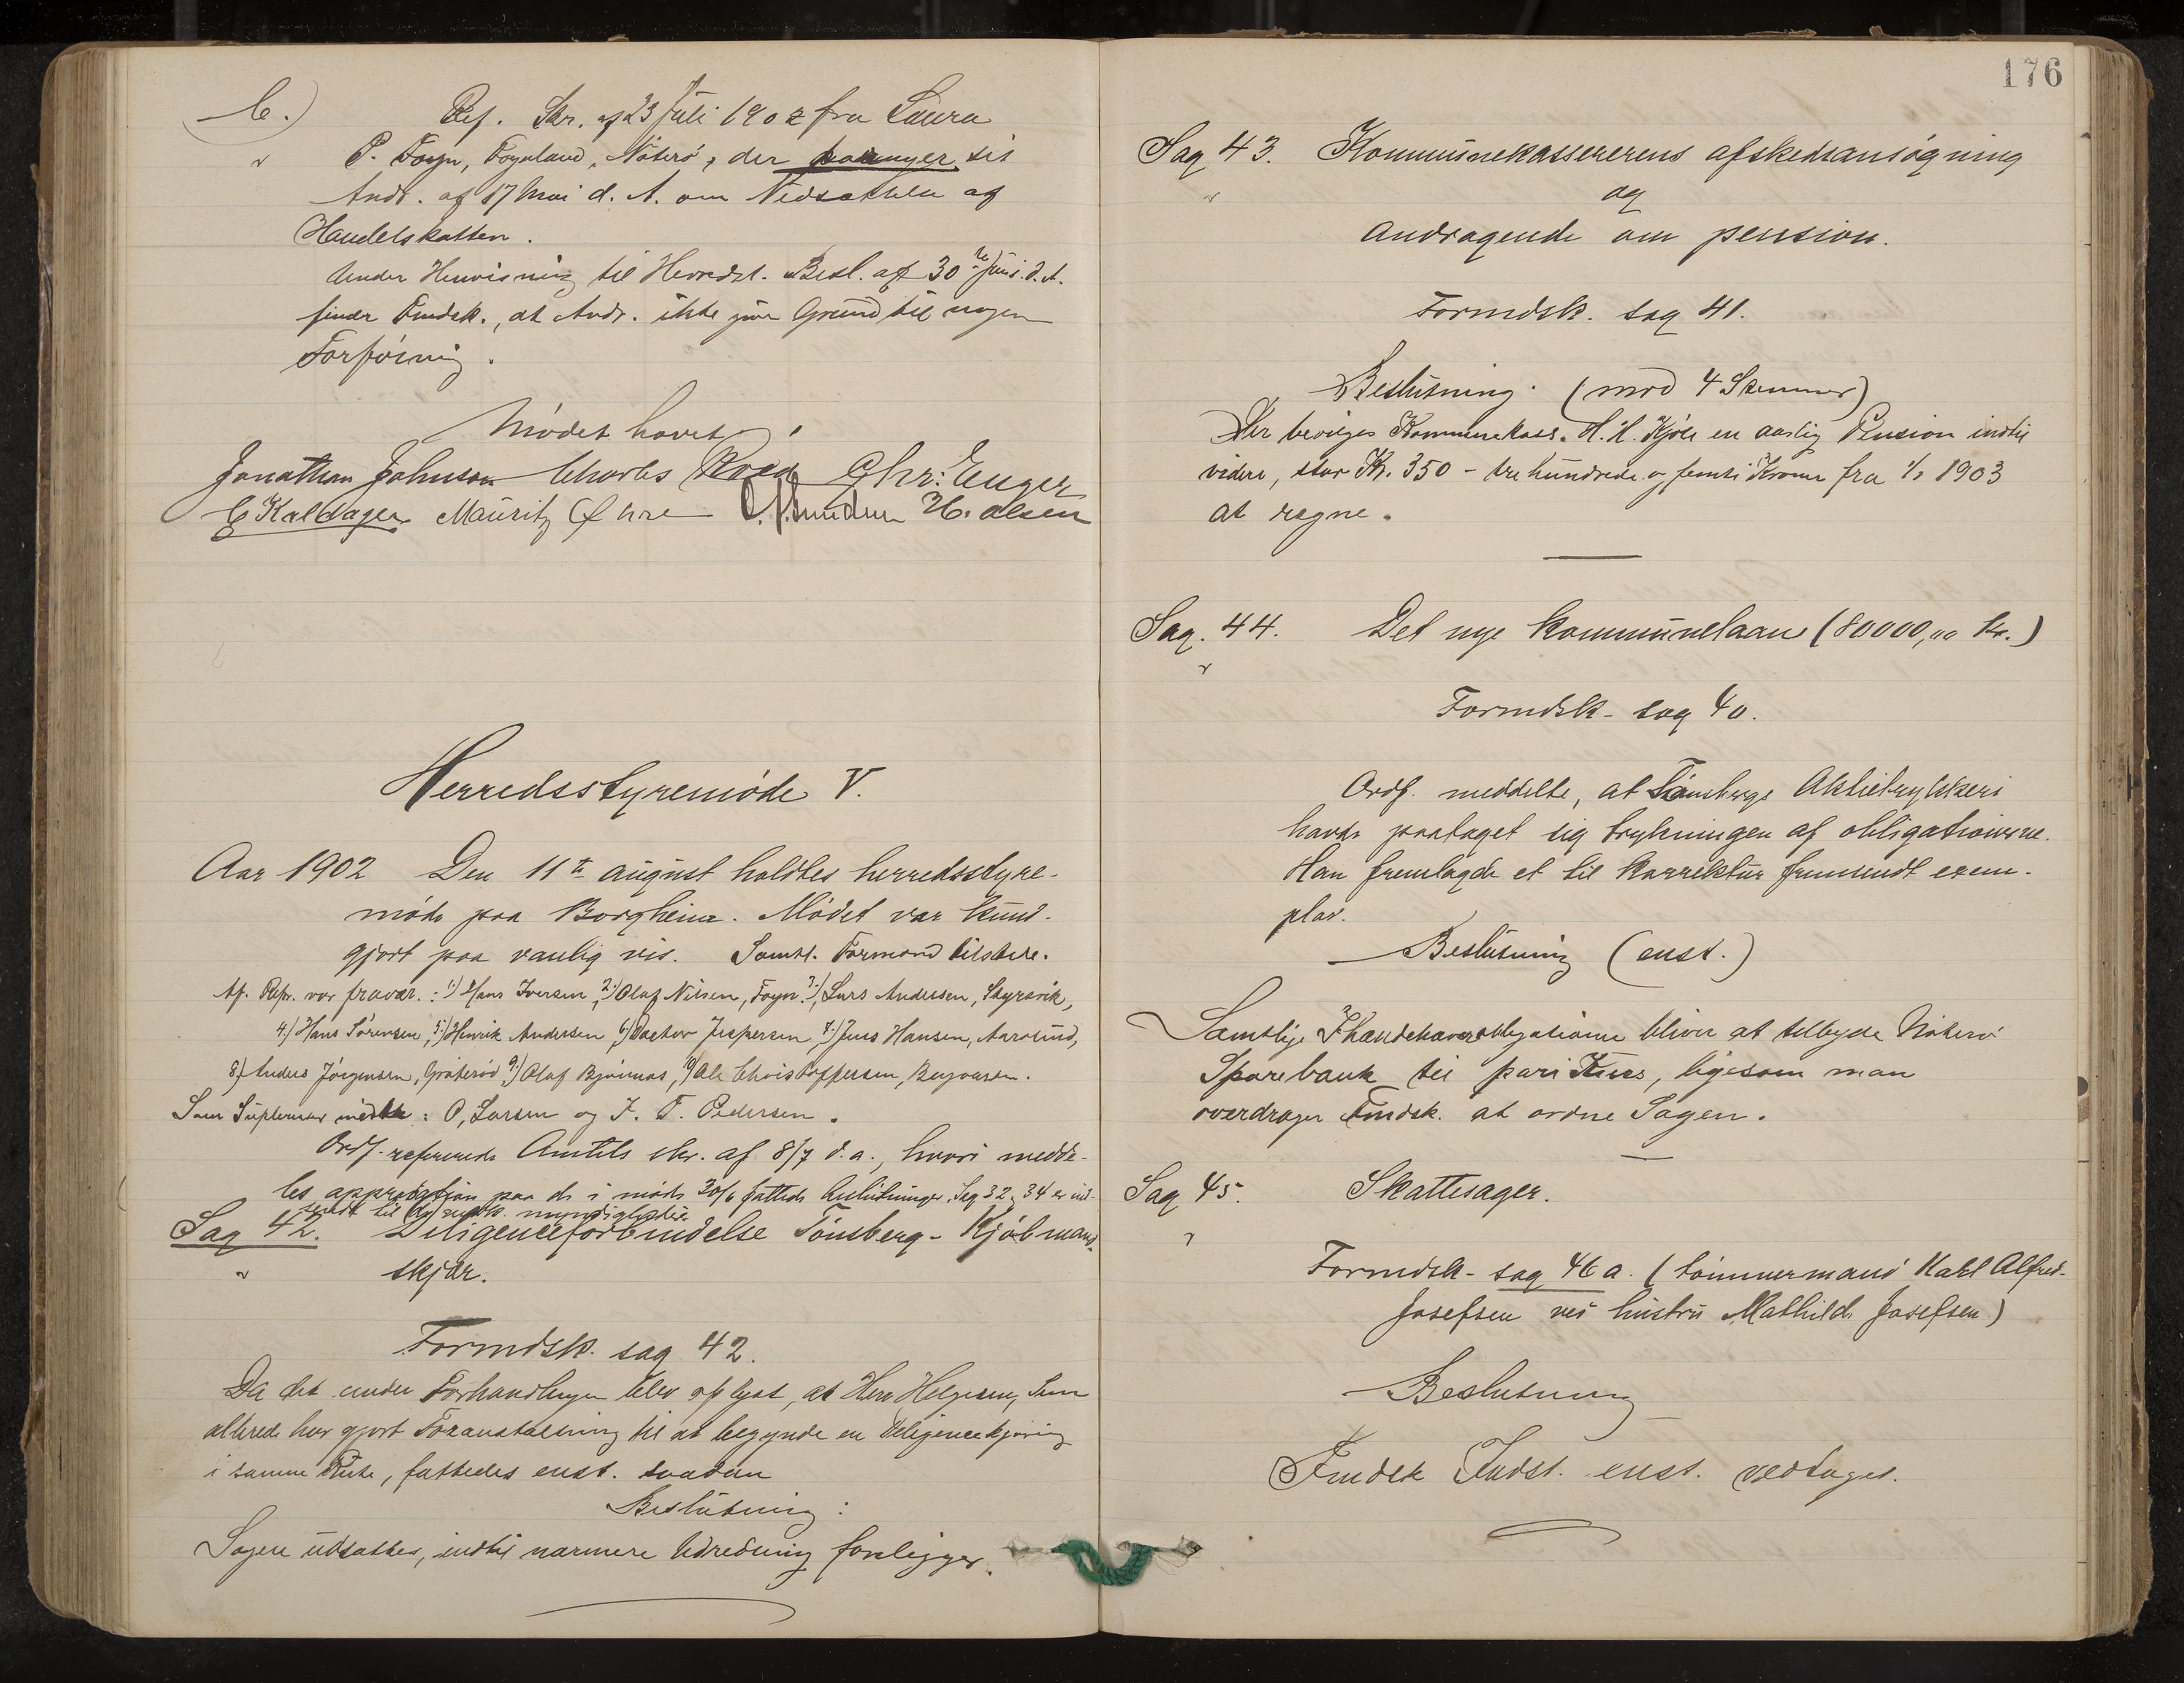 C.)
Ref. Skr. af 23 Juli 1902 fra Laura
P. Foyn, Foynland, Nøterø, der forlanger sit
Andr. af 17 Mai d. A. om Nedsættelse af
Handelskatten.
Under Henvisning til Herredst. Besl. af 30te Juni d. A.
finder Fmdsk., at Andr. ikke giver Grund til nogen
Forføining.
Mødet hævet.
Jonathan Johnson Charles Roed Chr: Unger
C Kaldager Mauritz H. Olsen
Herredsstyremøde V.
Aar 1902 Den 11te august holdtes herredsstyre-
møde paa Borgheim. Mødet var kund-
gjort paa vanlig vis. Samtl. Formænd tilstede.
Af Repr. var fravær.: 1) Hans Iversen, 2) Olaf Nilsen, Foyn. 3) Lars Andersen, Skyrsvik,
4) Hans Sørensen, 5) Henrik Andersen, 6) Doctor Jespersen, 7) Jens Hansen, Aarøsund,
8) Anders Jørgensen, Gråterød 9) Olaf Bjønnes, 10) Ole Christoffersen,
Som Suplenter mødte: O. Larsen og J. F. Pedersen.
Ordf. refererede Amtets skr. af 8/7 d. a., hvori medde-
les approbation paa de i møde 30/6 fattede beslutninger. Sag 32, 34 er ind-
sendt til myndigheder.
Sag 42. Diligenceforbindelse Tønsberg - Kjøbmand-
skjær.
Formdsk. sag 42.
Da det under Forhandlingen blev oplyst, at Herr Helgesen, som
allerede har gjort Foranstaltning til at begynde en Deligencekjøring
i samme Rute, fattedes enst. saadan
Beslutning:
Sagen udsættes, indtil nærmere Udredning foreligger.
176
Sag 43. Kommunekassererens afskedsansøgning
og
andragende om pension.
Formdsk. sag 41.
Beslutning. (mod 4 Stemmer)
Der beviges Kommunekass. H. H. Kjær en aarlig Pension indtil
videre, stor Kr. 350 - tre hundrede og femti Kroner fra 1/1 1903
at regne.
Sag. 44. Det nye kommunelaan (80000,00 kr.)
Formdsk - sag 40.
Ordf. meddelte, at Tønsbergs Aktietrykkeri
havde paataget sig trykningen af obligationerne.
Han fremlagde et til korrektur fremsendt exem-
plar.
Beslutning (enst.)
Samtlige Ihændehaverobligationer bliver at tilbyde Nøterø
Sparebank til pari Kurs, ligesom man
overdrager Fmdsk. at ordne Sagen.
Sag 45. Skattesager.
Formdsk - sag 46 a. (tømmermand Karl Alfred-
Josefsen ved hustru Mathilde Josefsen)
Beslutning
Fmdsk Indst. enst. vedtaget.